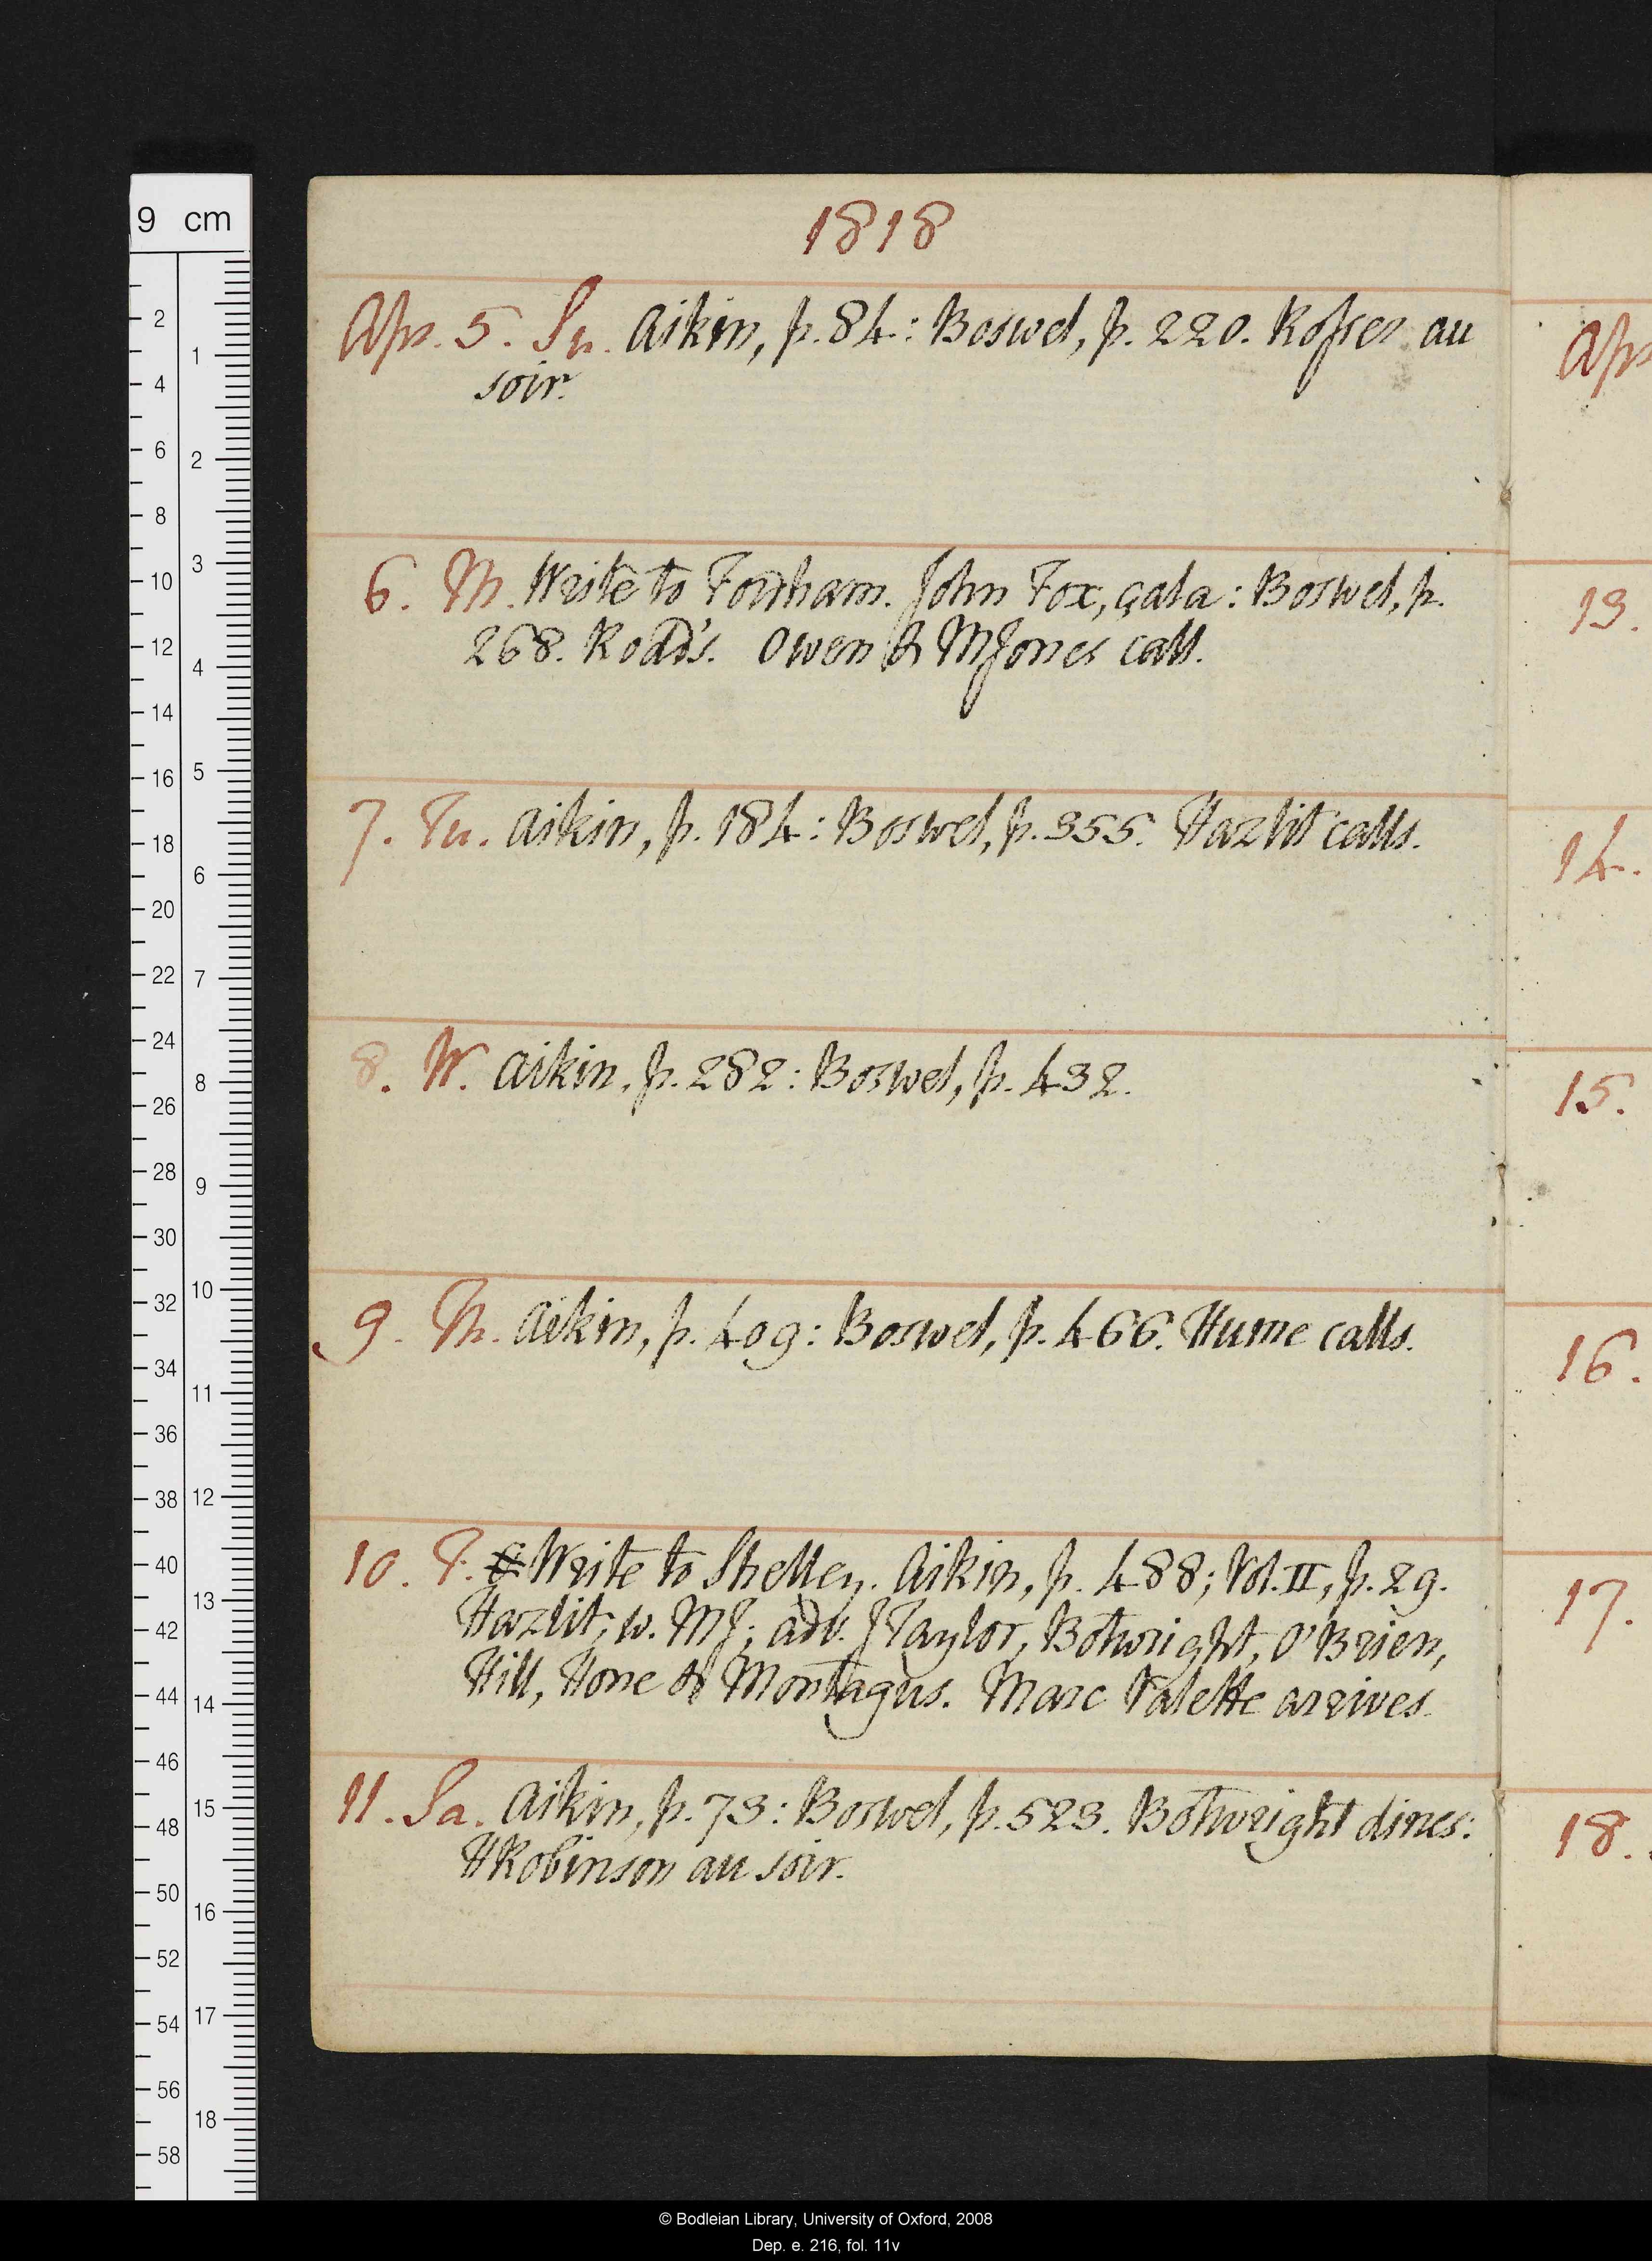 1818
Apr. 5. Su. Aikin, p. 84: Boswel, p. 220. Rosser au
soir.
6. M. Write to Fordham. John Fox, çala: Boswel, p.
268. Rodd's. Owen & MJones call.
7. Tu. Aikin, p. 184: Boswel, p. 355. Hazlit calls.
8. W. Aikin, p. 282: Boswel, p. 432.
9. Th. Aikin, p. 409: Boswel, p. 466. Hume calls.
10. F. Write to Shelley. Aikin, p. 488; Vol. II, p. 29.
Hazlit; w. MJ; adv. JTaylor, Botwright, O'Brien,
Hill, Hone & Montagus. Marc Valette arrives.
11. Sa. Aikin, p. 73: Boswel, p. 523. Botwright dines:
HRobinson au soir.
Apr
13.
14.
15.
16.
17.
18.
9 cm
2
4
6
8
10
12
14
16
18
20
22
24
26
28
30
32
34
36
38
40
42
44
46
48
50
52
54
56
58
1
2
3
4
5
6
7
8
9
10
11
12
13
14
15
16
17
18
© Bodleian Library, University of Oxford, 2008
Dep. e. 216, fol. 11v